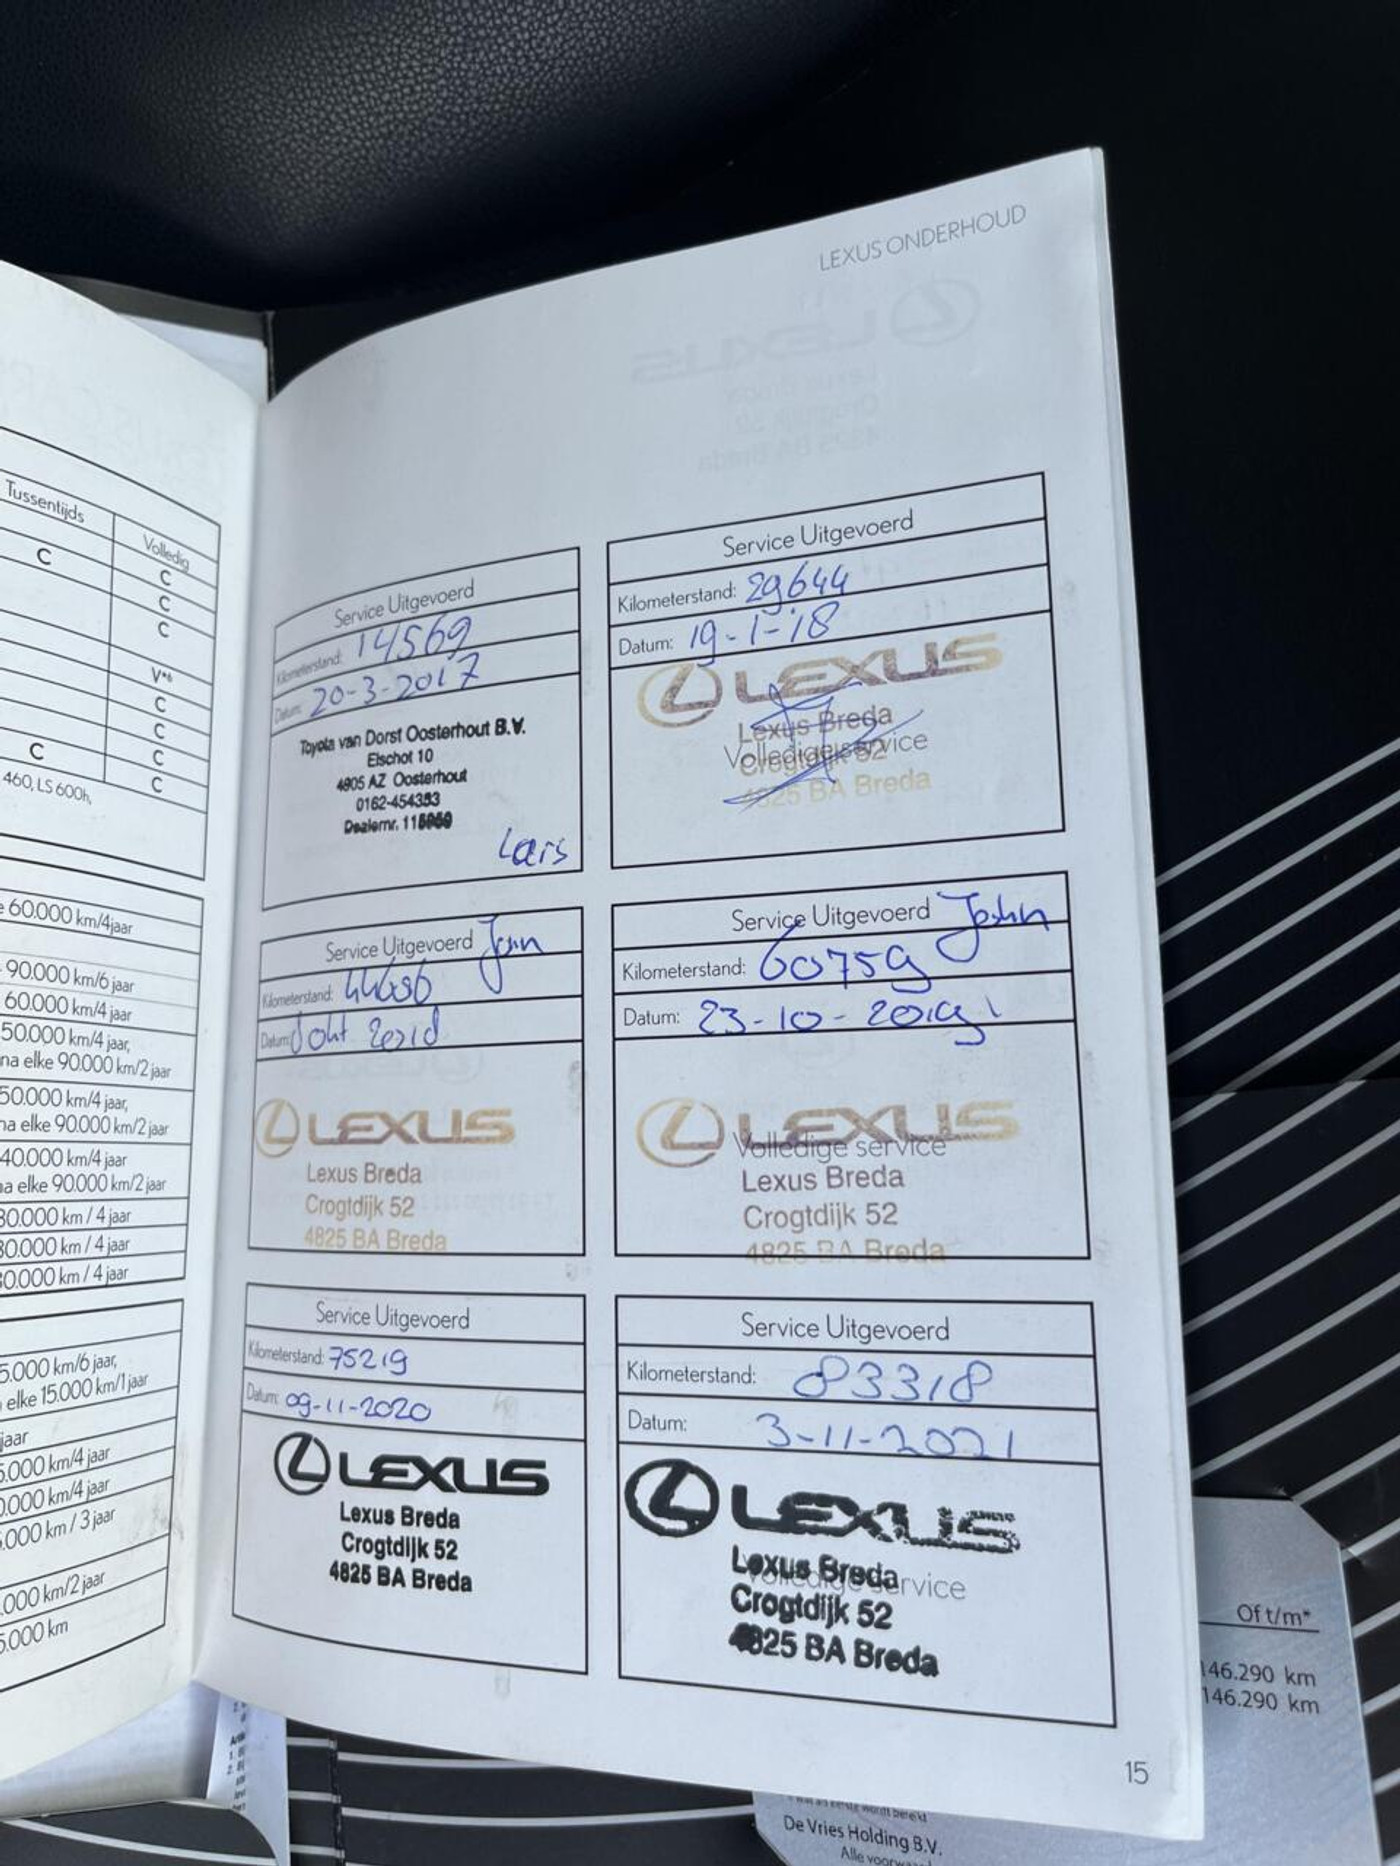 Tussentijds
Volledig
C
C
C
C
V*6
C
C
C
C
C
460, LS 600h,
60.000 km/4jaar
90.000 km/6 jaar
60.000 km/4 jaar
50.000 km/4 jaar,
na elke 90.000 km/2 jaar
50.000 km/4 jaar,
na elke 90.000 km/2 jaar
40.000 km/4 jaar
na elke 90.000 km/2 jaar
30.000 km / 4 jaar
30.000 km / 4 jaar
30.000 km / 4 jaar
5.000 km/6 jaar,
elke 15.000 km/1 jaar
jaar
5.000 km/4 jaar
0.000 km/4 jaar
.000 km / 3 jaar
.000 km/2 jaar
5.000 km
LEXUS ONDERHOUD
Service Uitgevoerd
Kilometerstand: 14569
Datum: 20-3-2017
Toyota van Dorst Oosterhout B.V.
Elschot 10
4905 AZ Oosterhout
0162-454353
Dealernr.
Lars
Service Uitgevoerd
Kilometerstand: 29644
Datum: 19-1-'18
LEXUS
Lexus Breda
Volledige service
Crogtdijk 52
4825 BA Breda
Service Uitgevoerd
Kilometerstand:
Datum:
LEXUS
Lexus Breda
Crogtdijk 52
4825 BA Breda
Service Uitgevoerd John
Kilometerstand: 60759
Datum: 23-10-2019
LEXUS
Volledige service
Lexus Breda
Crogtdijk 52
4825 BA Breda
Service Uitgevoerd
Kilometerstand: 75219
Datum: 09-11-2020
LEXUS
Lexus Breda
Crogtdijk 52
4825 BA Breda
Service Uitgevoerd
Kilometerstand: 83318
Datum: 3-11-2021
LEXUS
Lexus Breda
Volledige service
Crogtdijk 52
4825 BA Breda
15
Of t/m*
146.290 km
146.290 km
De Vries Holding B.V.